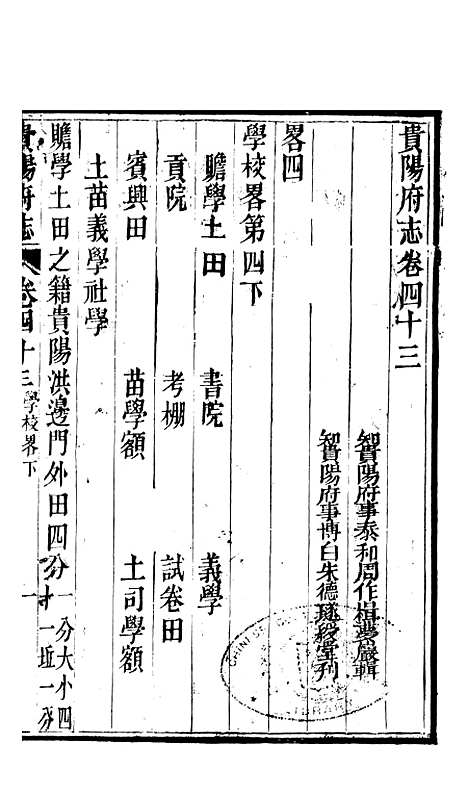 貴陽府志卷四十三
知貴陽府事泰和周作楫夢巖輯
知貴陽府事博白朱德璲綬堂刊
畧四
學校畧第四下
贍學土田　書院　義學
貢院　考棚　試卷田
賓興田　苗學額　土司學額
土苗義學社學
贍學土田之籍貴陽洪邊門外田四分一分大小四
十一坵一分
貴陽府志　卷四十三　學校畧下　一